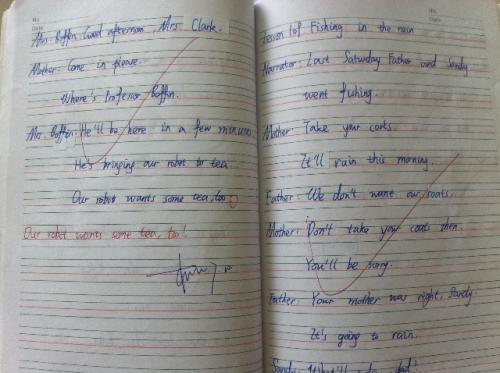 No.
Date
Mrs. Boffin: Good afternoon, Mrs. Clark.
Mother: Come in please.
Where's Professor Boffin.
Mrs. Boffin: He'll be here in a few minutes.
He's bringing our robot to tea
Our robot wants some tea, too
Our robot wants some tea, too!
No.
Date
Lesson 101 Fishing in the rain
Narrator: Last Saturday Father and Sandy
went fishing.
Mother: Take your coats.
It'll rain this morning.
Father: We don't want our coats.
Mother: Don't take your coats then.
You'll be sorry.
Father: Your mother was right, Sandy.
It's going to rain.
Sandy: What'll do dad?